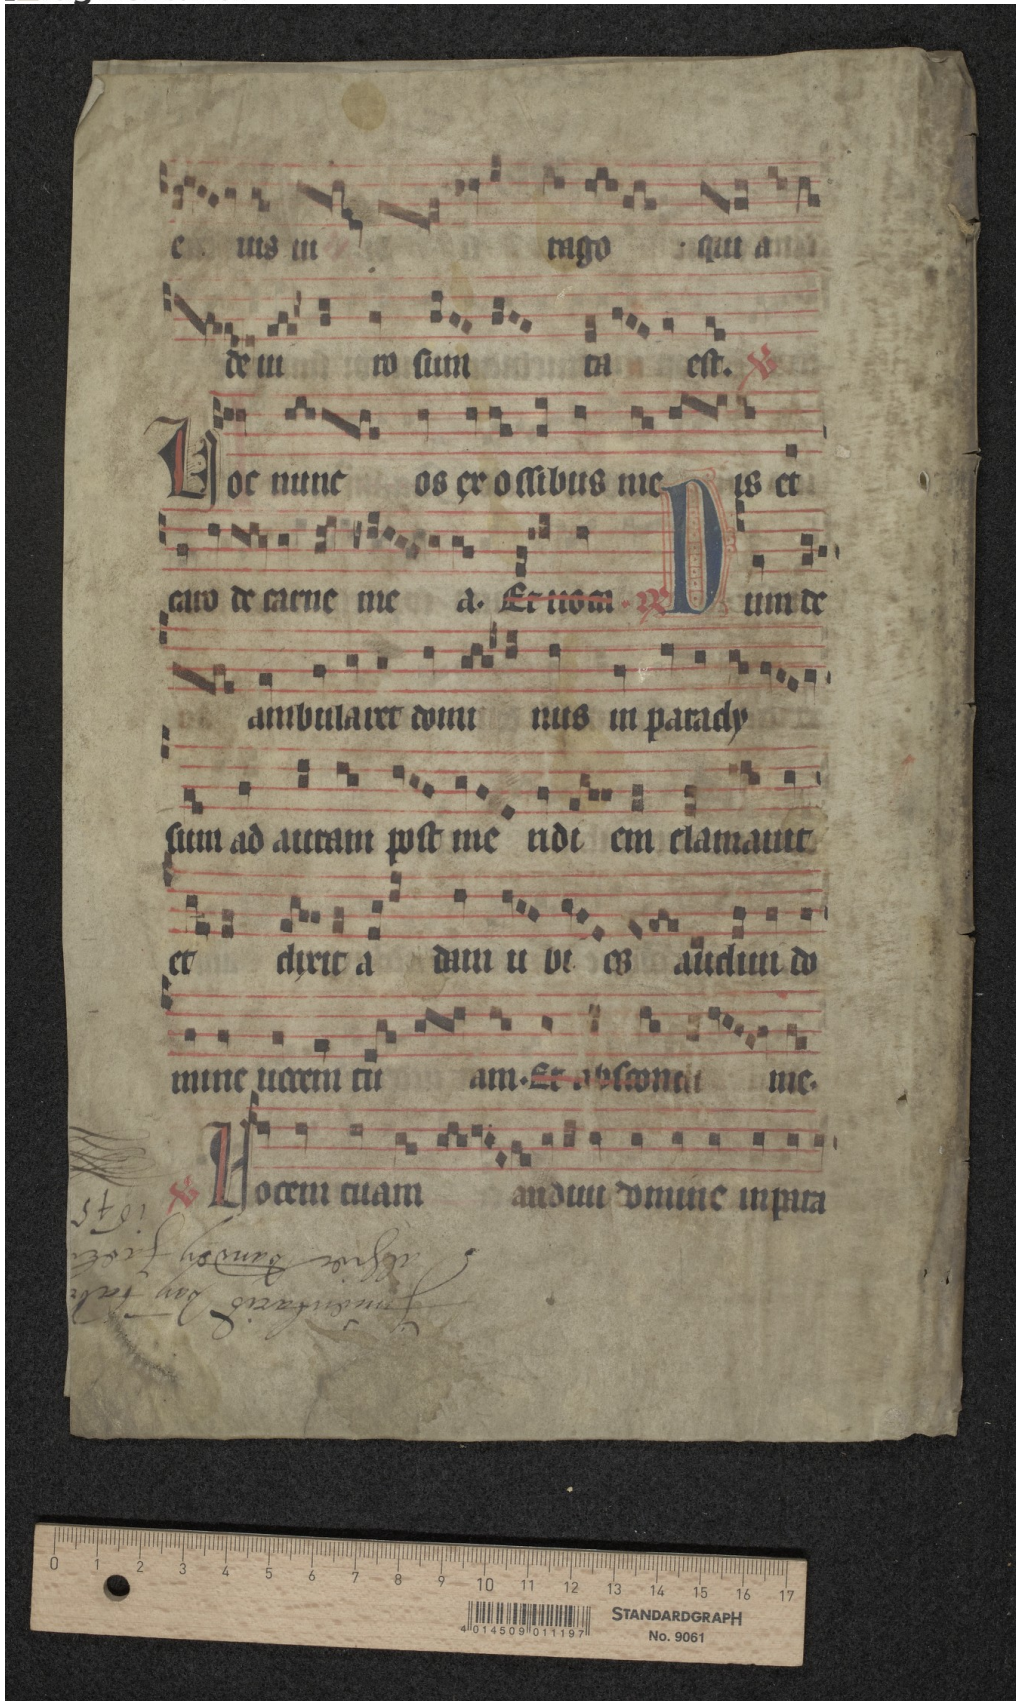 e ius in rago qui a
de in ro sum ta est. ℣
Hoc nunc os ex ossibus me is et
caro de carne me a. Et nom ℟ Dum de
ambularet domi nus in parady
sum ad auram post me ridi em clamauit
et dixit a dam u bi es audiui do
mine uocem tu am. Et abscondi me.
℣ Uocem tuam audiui domine in para
1675
0 1 2 3 4 5 6 7 8 9 10 11 12 13 14 15 16 17
STANDARDGRAPH
4 014509 011197
No. 9061